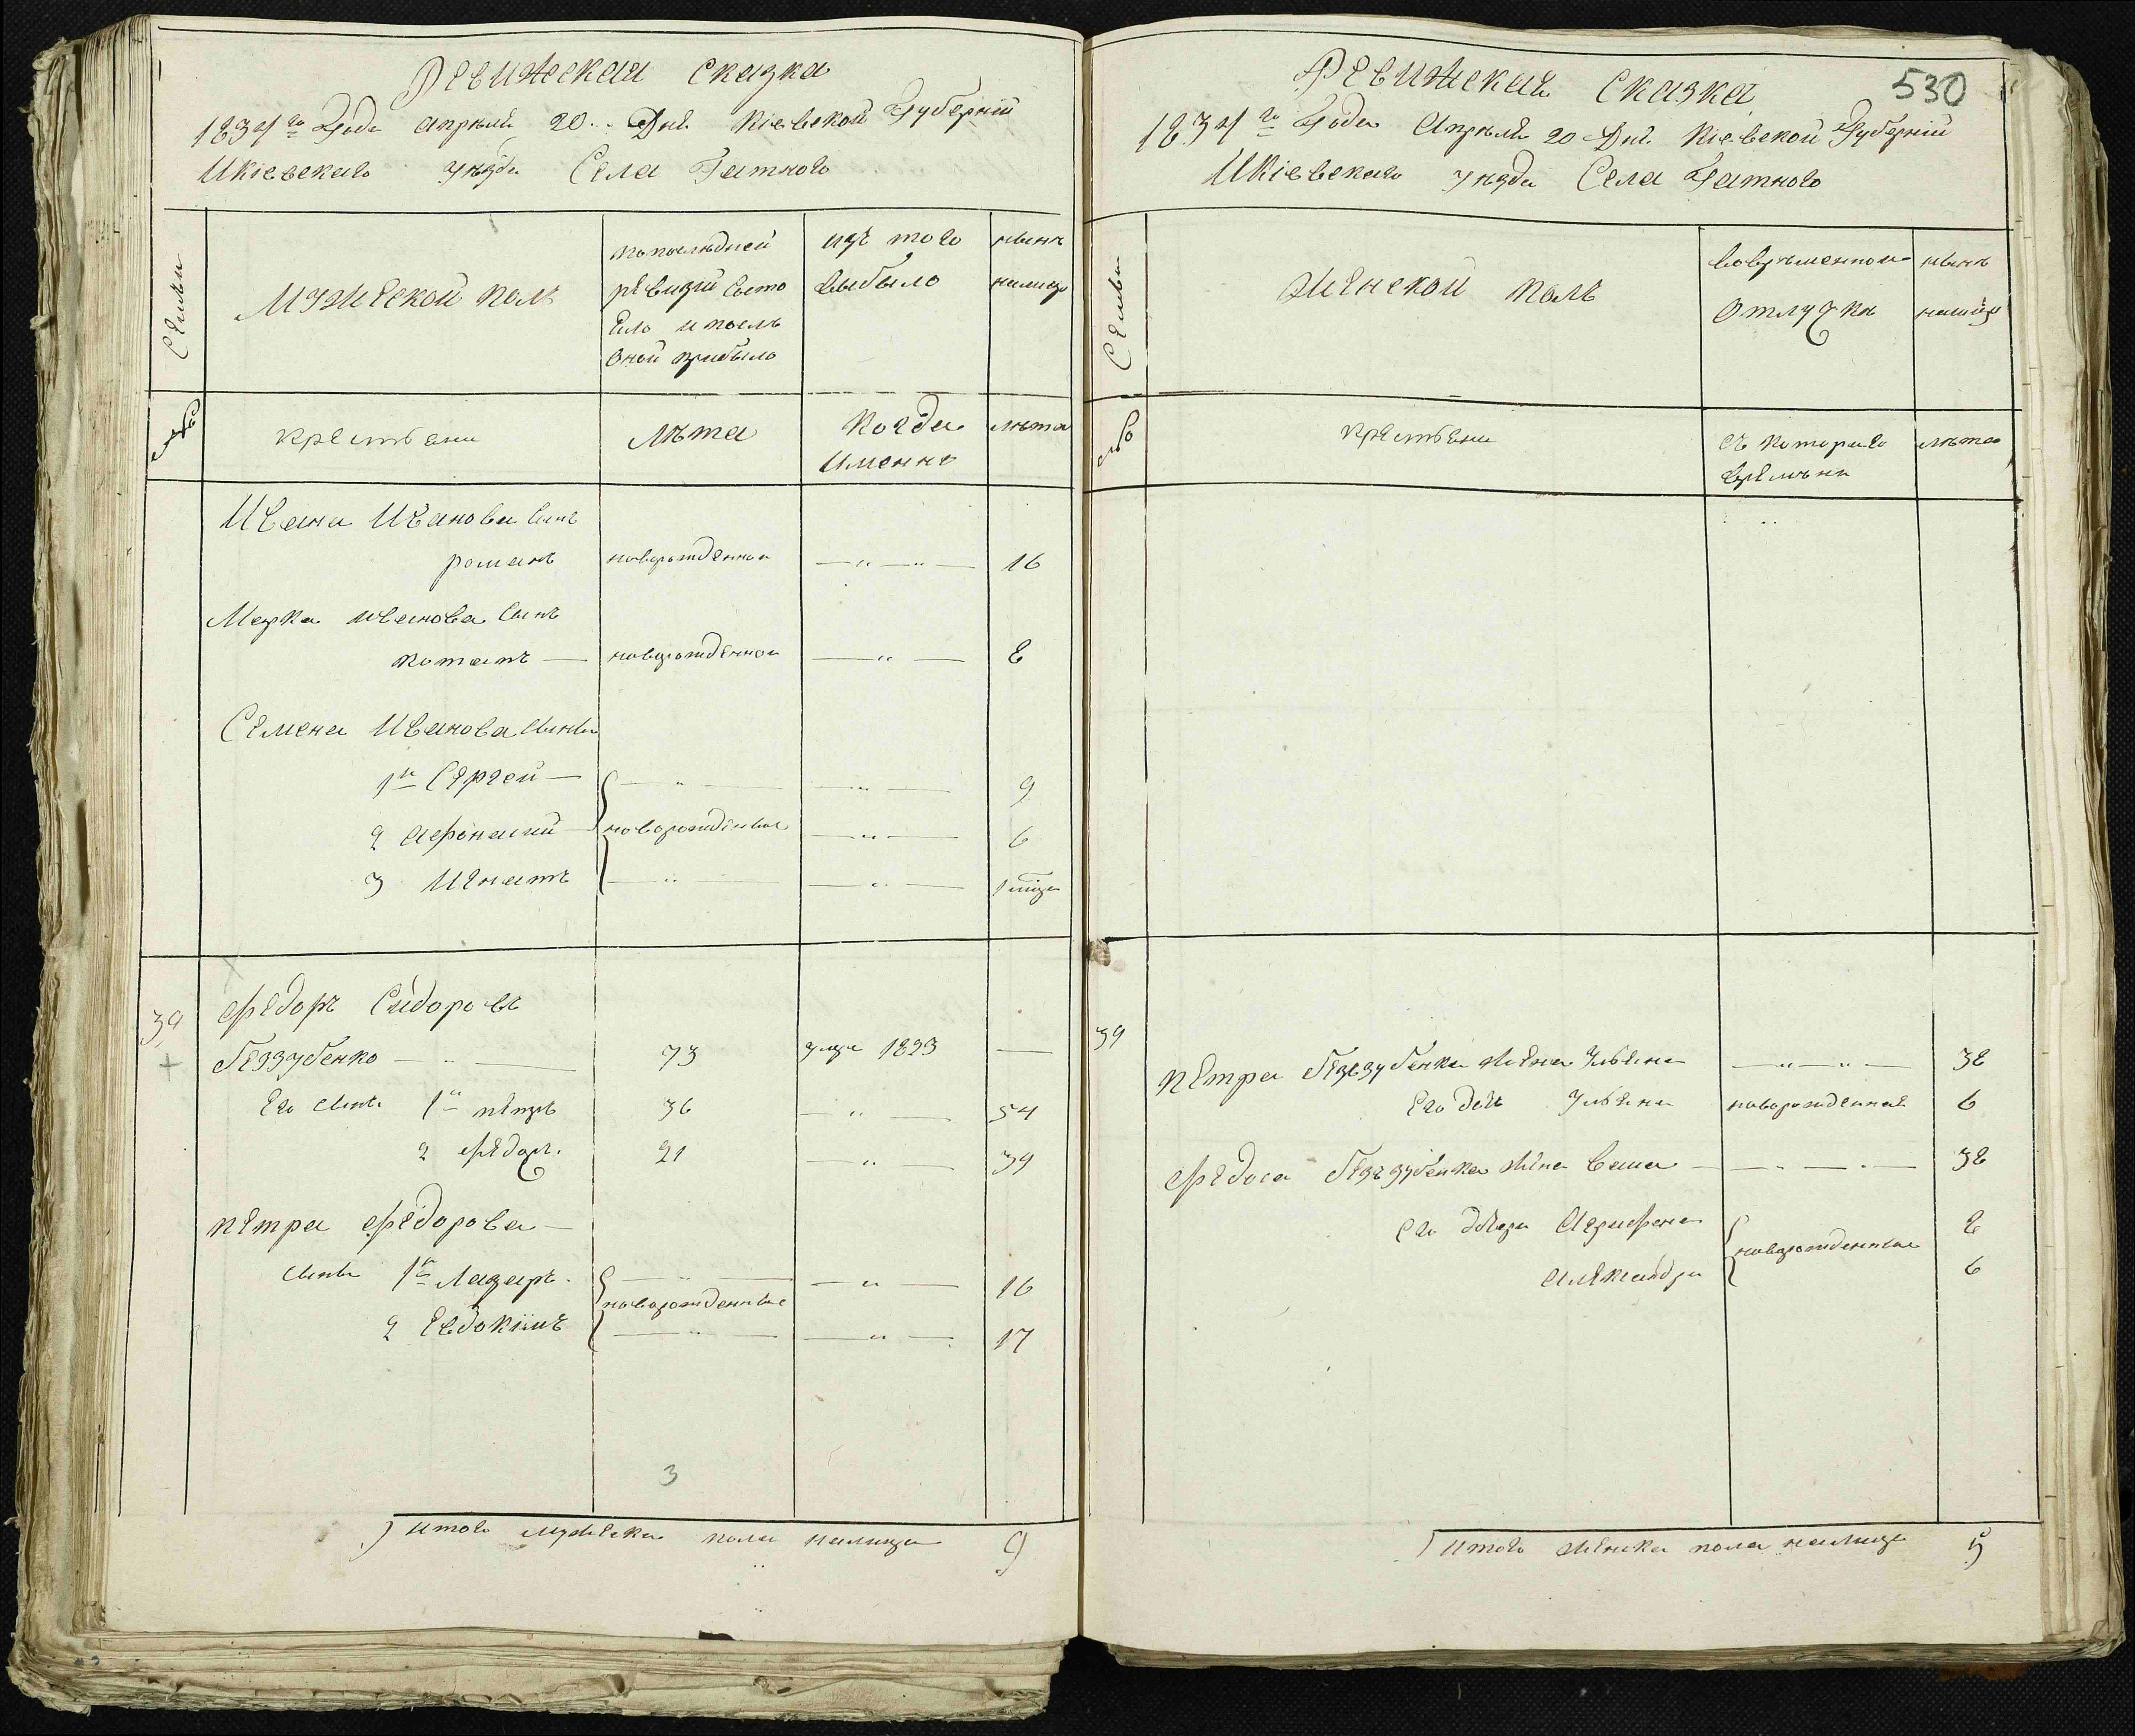 Ревижская сказка
1834го Года апреля 20. Дня Кіевской Губерніи
Икіевскаго уезда Села Гатного
Семьи
Мужеской полъ
попоследней ревизіи состо
яло и после
оной прибыло
изъ того
выбыло
ныне
налицо
№
крестьяни
Лета
Когда
именно
лета
Ивана Иванова сынъ
романъ новорожденной — " — " — 16
Марка иванова сынъ
потапъ — новорожденной — " — 8
Семена Иванова сынъ
1й Сергей — — " — — " — 9
2 Афонасий новорожденные — " — 6
3 Игнатъ — " — — " —
39 Федоръ Сидоровъ
Беззубенко — " — 73 умре 1823 —
Его сынъ 1й петръ 36 — " — 54
2 Федосъ 21 — " — 39
петра Федорова —
сыны 1й Лазарь — " — — " — 16
новорожденные
2 Евдокимъ — " — — " — 17
3
итого мужеска пола налицо 9
530
Ревижская Сказка
1834го Года Апреля 20 Дня Кіевской Губерніи
Икіевскаго уезда Села Гатного
Семьи
Женской полъ
вовременной
отлучке
ныне
налицо
№
крестьяни
съ котораго
времени
лета
39
петра Беззубенка жена Ульяна — " — " — 38
Его дочь Ульяна новорожденная 6
Федоса Беззубенка жена — " — 38
его дочери Агрифена 8
новорожденные
Александра 6
итого женска пола налицо 5